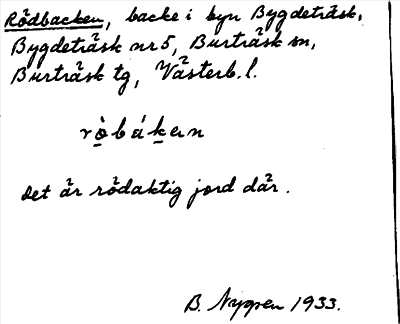 Rödbacken, backe i byn Bygdeträsk,
Bygdeträsk nr 5, Burträsk sn,
Burträsk tg, Västerb. l.
rò̱bák̲en
Det är rödaktig jord där.
B. Nyppen 1933.